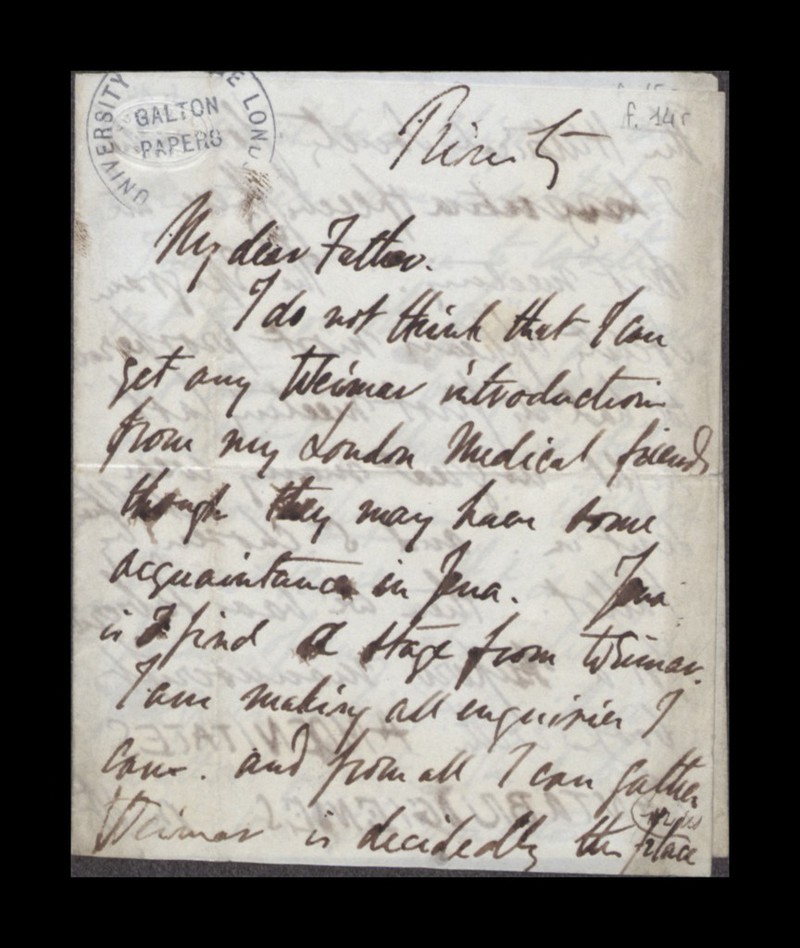 UNIVERSITY
GALTON
PAPERS
LON
f. 14r
Trinity
My dear Father.
I do not think that I can
get any Weimar introduction
from my London Medical friends
though they may have some
acquaintance in Jena. Jena
is I find a stage from Weimar.
I am making all enquiries I
can. and from all I can gather
Weimar is decidedly the place